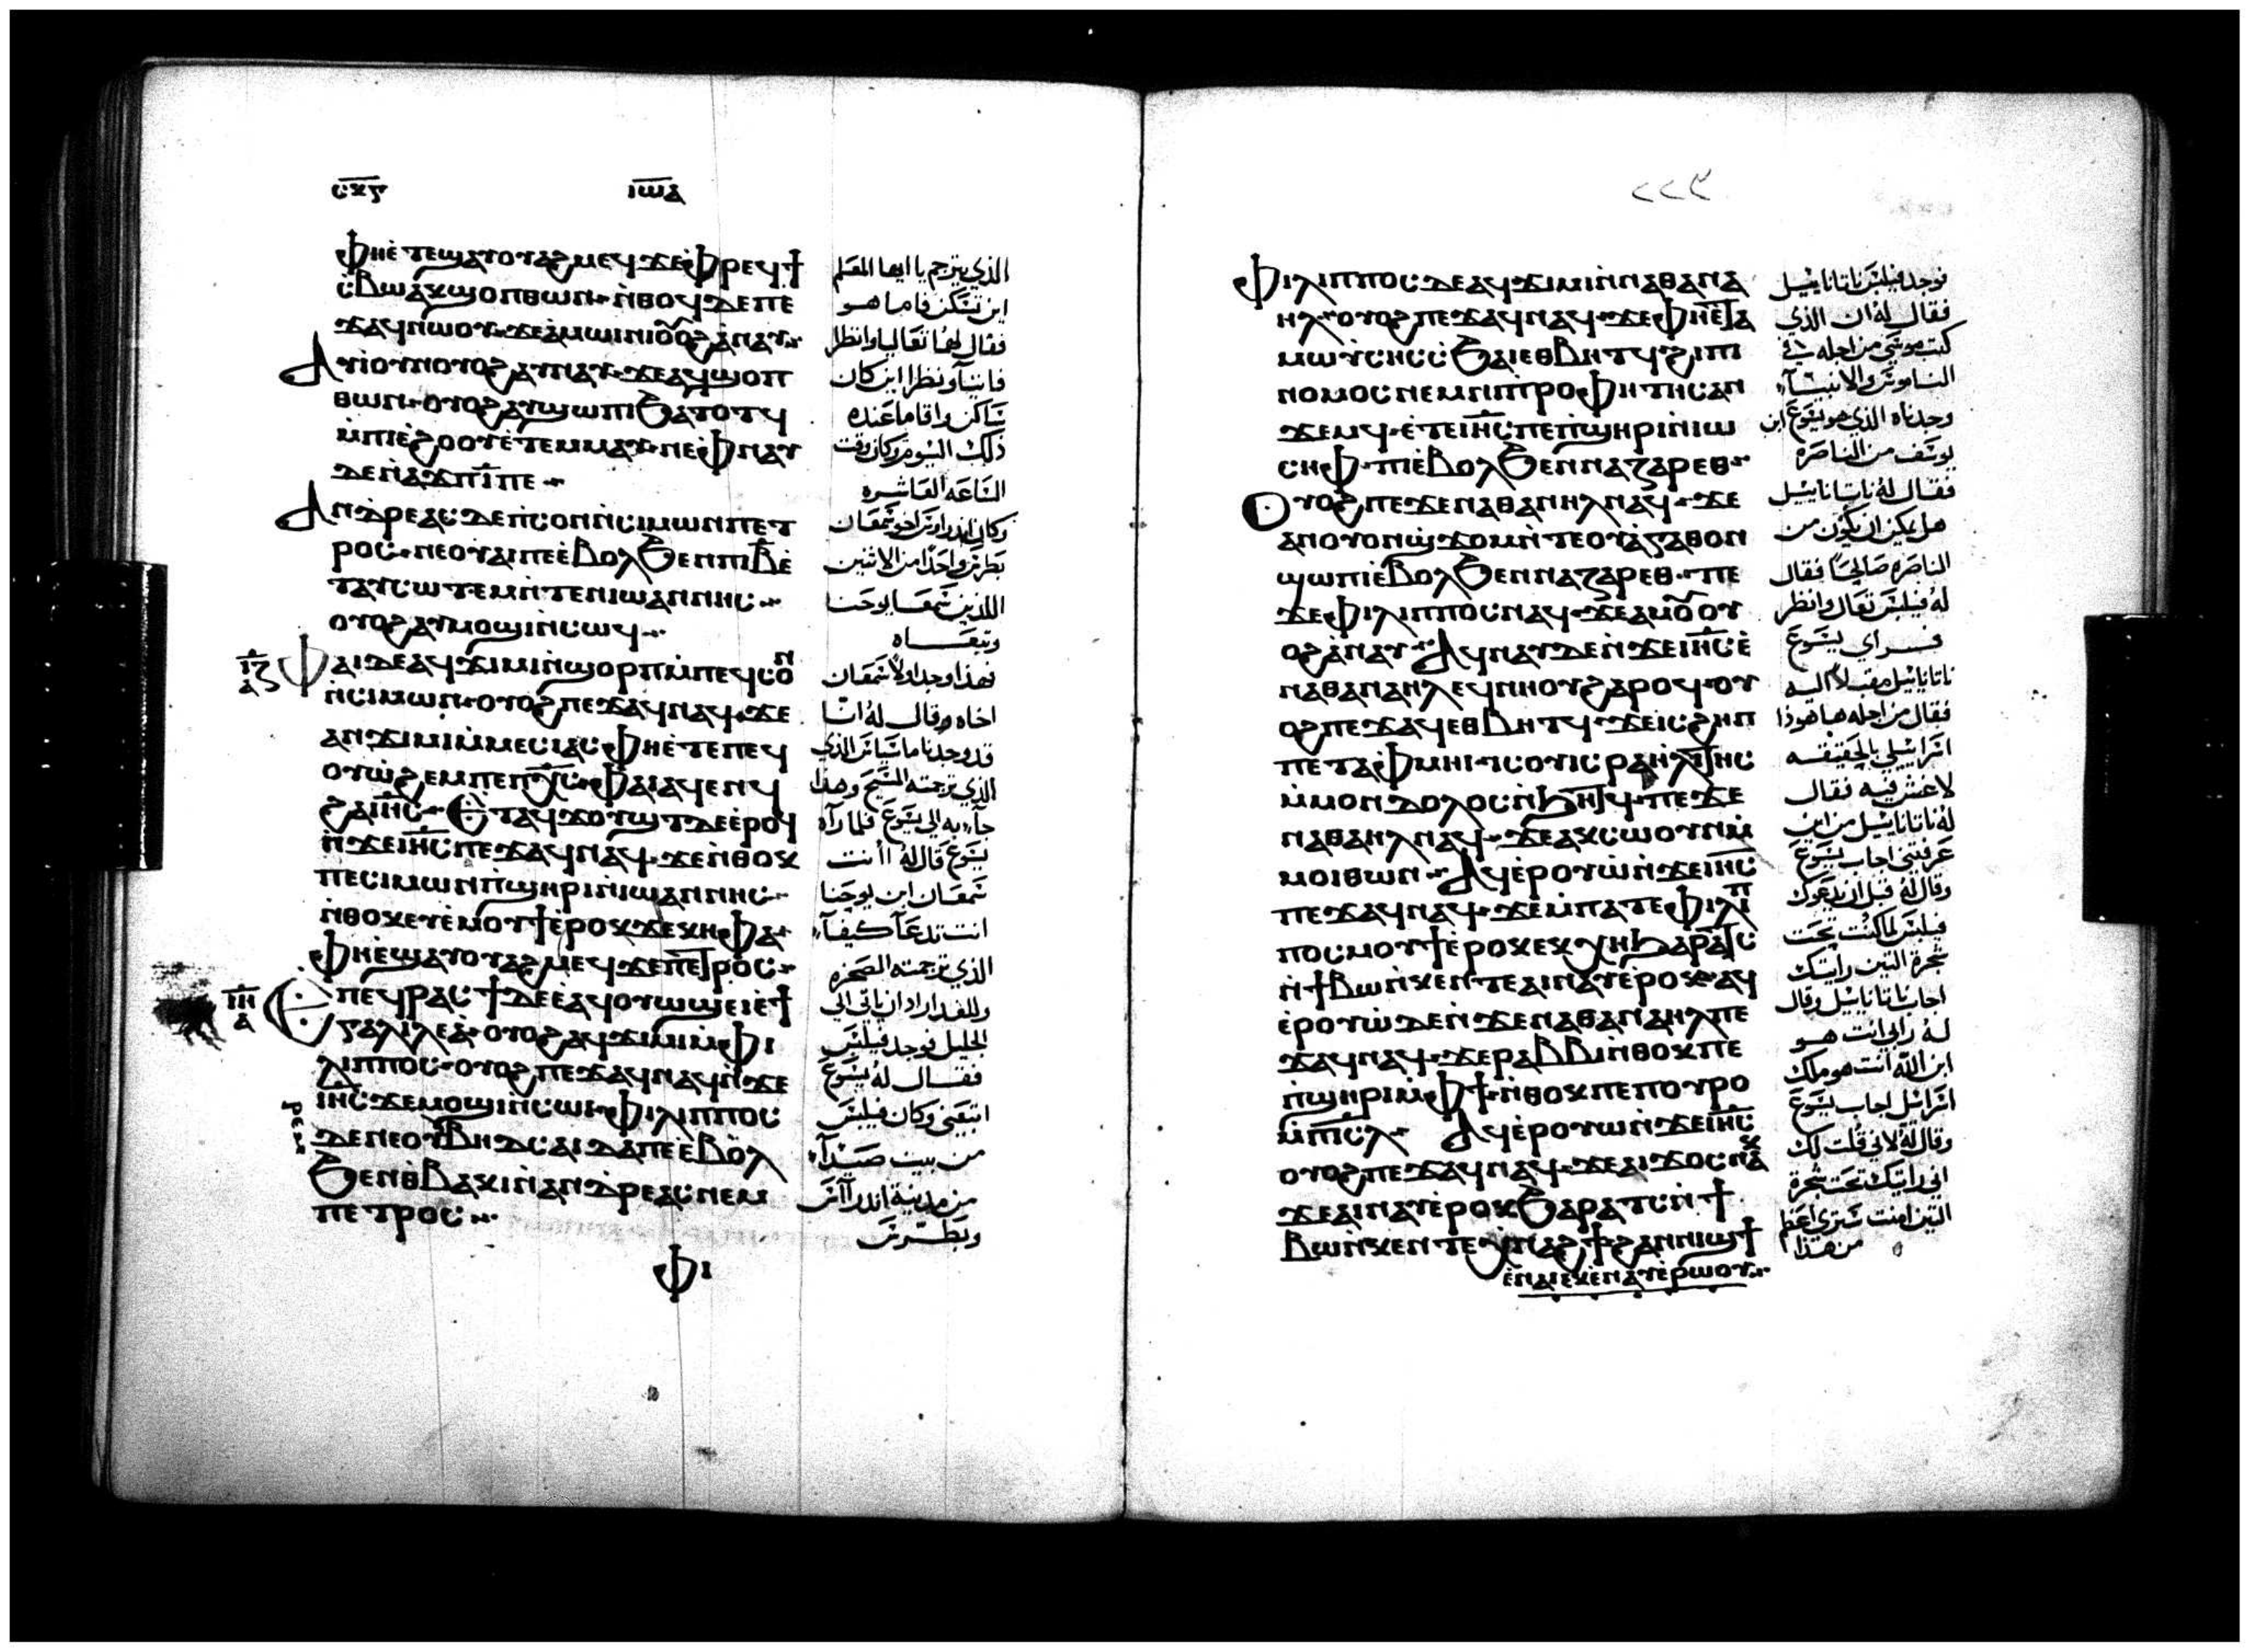 ⲥⲕⲋ ⲓⲱⲁ
ⲫⲏⲉ̇ⲧⲉϣⲁⲩⲟⲩⲁϩⲙⲉϥ ϫⲉ ⲫⲣⲉϥϯ
ⲥ̇ⲃⲱ ⲁⲕϣⲟⲡ ⲑⲱⲛ· ⲛ̇ⲑⲟϥ ⲇⲉ ⲡⲉ
ϫⲁϥ ⲛⲱⲟⲩ· ϫⲉ ⲁ̇ⲙⲱⲓⲛⲓ ⲟⲩⲟϩ ⲁ̇ⲛⲁⲩ
ⲁⲩⲓ̇ ⲟⲩⲛ ⲟⲩⲟϩ ⲁⲩⲛⲁⲩ· ϫⲉ ⲁϥϣⲟⲡ
ⲑⲱⲛ· ⲟⲩⲟϩ ⲁⲩϣⲱⲡⲓ ϧⲁⲧⲟⲧϥ
ⲙ̇ⲡⲓⲉ̇ϩⲟⲟⲩ ⲉ̇ⲧⲉⲙⲙⲁⲩ· ⲛⲉ ⲫⲛⲁⲩ
ⲇⲉ ⲛ̇ⲁϫⲡ ⲓ̅ ⲡⲉ
ⲁⲛⲇⲣⲉⲁⲥ ⲇⲉ ⲡ̇ⲥⲟⲛ ⲛ̇ⲥⲓⲙⲱⲛ ⲡⲉⲧ
ⲣⲟⲥ· ⲛⲉ ⲟⲩⲁⲓ ⲡⲉ ⲉ̇ⲃⲟⲗ ϧⲉⲛ ⲡⲓⲃ̅ ⲉ̇
ⲧⲁⲩⲥⲱⲧⲉⲙ ⲛ̇ⲧⲉⲛ ⲓⲱⲁⲛⲛⲏⲥ
ⲟⲩⲟϩ ⲁⲩⲙⲟϣⲓ ⲛ̇ⲥⲱϥ
ⲓⲍ ⲁ
ⲫⲁⲓ ⲇⲉ ⲁϥϫⲓⲙⲓ ⲛ̇ϣⲟⲣⲡ ⲙ̇ⲡⲉϥⲥⲟⲛ
ⲛ̇ⲥⲓⲙⲱⲛ· ⲟⲩⲟϩ ⲡⲉϫⲁϥ ⲛⲁϥ· ϫⲉ
ⲁⲛϫⲓⲙⲓ ⲙ̇ⲙⲉⲥⲓⲁⲥ ⲫⲏⲉ̇ⲧⲉ ⲡⲉϥ
ⲟⲩⲱϩⲉⲙ ⲡⲉ ⲡⲭ̅ⲥ̅· ⲫⲁⲓ ⲁϥⲉⲛϥ
ϩⲁ ⲓⲏ̅ⲥ̅ ⲉⲧⲁϥϫⲟⲩϣⲧ ⲇⲉ ⲉ̇ⲣⲟϥ
ⲛ̇ϫⲉ ⲓⲏ̅ⲥ̅ ⲡⲉϫⲁϥ ⲛⲁϥ· ϫⲉ ⲛ̇ⲑⲟⲕ
ⲡⲉ ⲥⲓⲙⲱⲛ ⲡ̇ϣⲏⲣⲓ ⲛ̇ⲓⲱⲁⲛⲛⲏⲥ
ⲛ̇ⲑⲟⲕ ⲉⲩⲉ̇ⲙⲟⲩϯ ⲉ̇ⲣⲟⲕ ϫⲉ ⲕⲏⲫⲁ·
ⲫⲏⲉ̇ϣⲁⲩⲟⲩⲁϩⲙⲉϥ ϫⲉ ⲡⲉⲧⲣⲟⲥ
ⲓⲏ ⲁ
ⲉⲡⲉϥⲣⲁⲥϯ ⲇⲉ ⲉ̇ⲁϥⲟⲩⲱϣ ⲉⲓ ⲉ̇ϯ
ⲅⲁⲗⲓⲗⲉⲁ̇· ⲟⲩⲟϩ ⲁϥϫⲓⲙⲓ ⲙ̇ⲫⲓ
ⲗⲓⲡⲡⲟⲥ· ⲟⲩⲟϩ ⲡⲉϫⲁϥ ⲛⲁϥ ⲛ̇ϫⲉ
ⲓⲏ̅ⲥ̅ ϫⲉ ⲙⲟϣⲓ ⲛ̇ⲥⲱⲓ· ⲫⲓⲗⲓⲡⲡⲟⲥ
ⲇⲉ ⲛⲉ ⲟⲩⲃⲏⲇⲥⲁⲓⲇⲁ ⲡⲉ ⲉ̇ⲃⲟⲗ
ϧⲉⲛ ⲑ̇ⲃⲁⲕⲓ ⲛ̇ⲁⲛⲇⲣⲉⲁⲥ ⲛⲉⲙ
ⲡⲉⲧⲣⲟⲥ
ⲫⲓ
الذي يترجم يا ايها المعلم
اين تسكن فاما هو
فقال لهما تعاليا وانظرا
فاتيا ونظرا اين كان
ساكن واقاما عنده
ذلك اليوم وكان وقت
الساعة العاشره
وكان اندراوس اخو شمعان
بطرس واحدا من الاثنين
اللذين سمعا يوحنا
وتبعاه
فهذا وجد اولا شمعان
اخاه وقال له اننا
قد وجدنا ماسياس الذي
الذي ترجمته المسيح وهذا
جآء به الى يسوع فلما رآه
يسوع قال له اانت
شمعان ابن يوحنا
انت تدعآ كيفآ
الذي ترجمته الصخره
وللغد اراد ان ياتي الى
الجليل فوجد فيلبس
فقال له يسوع
اتبعني وكان فيلبس
من بيت صيدآ
من مدينة اندرآس
وبطرس
٢٢٣
ⲫⲓⲗⲓⲡⲡⲟⲥ ⲇⲉ ⲁϥϫⲓⲙⲓ ⲛ̇ⲛⲁⲑⲁⲛⲁ
ⲏⲗ· ⲟⲩⲟϩ ⲡⲉϫⲁϥ ⲛⲁϥ· ϫⲉ ⲫⲏⲉ̇ⲧⲁ
ⲙⲱⲩ̇ⲥⲏⲥ ⲥ̇ϧⲁⲓ ⲉⲑⲃⲏⲧϥ ϩⲓ ⲡⲓ
ⲛⲟⲙⲟⲥ ⲛⲉⲙ ⲛⲓⲡⲣⲟⲫⲏⲧⲏⲥ ⲁⲛ
ϫⲉⲙϥ· ⲉ̇ⲧⲉ ⲓⲏ̅ⲥ̅ ⲡⲉ ⲡ̇ϣⲏⲣⲓ ⲛ̇ⲓⲱ
ⲥⲏⲫ· ⲡⲓⲉ̇ⲃⲟⲗ ϧⲉⲛ ⲛⲁⲍⲁⲣⲉⲑ
ⲟⲩⲟϩ ⲡⲉϫⲉ ⲛⲁⲑⲁⲛⲏⲗ ⲛⲁϥ· ϫⲉ
ⲁⲛ ⲟⲩⲟⲛϣϫⲟⲙ ⲛ̇ⲧⲉ ⲟⲩⲁⲅⲁⲑⲟⲛ
ϣⲱⲡⲓ ⲉ̇ⲃⲟⲗ ϧⲉⲛ ⲛⲁⲍⲁⲣⲉⲑ· ⲡⲉ
ϫⲉ ⲫⲓⲗⲓⲡⲡⲟⲥ ⲛⲁϥ· ϫⲉ ⲁⲙⲟⲩ ⲟⲩ
ⲟϩ ⲁ̇ⲛⲁⲩ ⲁϥⲛⲁⲩ ⲇⲉ ⲛ̇ϫⲉ ⲓⲏ̅ⲥ̅ ⲉ̇
ⲛⲁⲑⲁⲛⲁⲏⲗ ⲉϥⲛⲏⲟⲩ ϩⲁⲣⲟϥ· ⲟⲩ
ⲟϩ ⲡⲉϫⲁϥ ⲉⲑⲃⲏⲧϥ· ϫⲉ ⲓⲥ ϩⲏⲡ
ⲡⲉ ⲧⲁⲫⲙⲏⲓ ⲓⲥ ⲟⲩⲓⲥⲣⲁⲏⲗⲓⲧⲏⲥ
ⲙ̇ⲙⲟⲛ ⲇⲟⲗⲟⲥ ⲛ̇ϧⲏⲧϥ· ⲡⲉϫⲉ
ⲛⲁⲑⲁⲏⲗ ⲛⲁϥ· ϫⲉ ⲁⲕⲥⲱⲟⲩⲛ ⲙ̇
ⲙⲟⲓ ⲑⲱⲛ ⲁϥⲉ̇ⲣⲟⲩⲱ̇ ⲛ̇ϫⲉ ⲓⲏ̅ⲥ̅
ⲡⲉϫⲁϥ ⲛⲁϥ· ϫⲉ ⲙ̇ⲡⲁⲧⲉ ⲫⲓⲗⲓⲡ
ⲡⲟⲥ ⲙⲟⲩϯ ⲉ̇ⲣⲟⲕ ⲉⲕⲭⲏ ϧⲁⲣⲁⲧⲥ
ⲛ̇ϯⲃⲱ ⲛ̇ⲕⲉⲛⲧⲉ ⲁⲓⲛⲁⲩ ⲉ̇ⲣⲟⲕ· ⲁϥ
ⲉ̇ⲣⲟⲩⲱ̇ ⲇⲉ ⲛ̇ϫⲉ ⲛⲁⲑⲁⲛⲁⲏⲗ ⲡⲉ
ϫⲁϥ ⲛⲁϥ· ϫⲉ ⲣⲁⲃⲃⲓ ⲛ̇ⲑⲟⲕ ⲡⲉ
ⲡ̇ϣⲏⲣⲓ ⲙ̇ⲫϯ· ⲛ̇ⲑⲟⲕ ⲡⲉ ⲡⲟⲩⲣⲟ
ⲙ̇ⲡⲓⲥⲗ ⲁϥⲉ̇ⲣⲟⲩⲱ ⲛ̇ϫⲉ ⲓⲏ̅ⲥ̅
ⲟⲩⲟϩ ⲡⲉϫⲁϥ ⲛⲁϥ· ϫⲉ ⲁⲓϫⲟⲥ ⲛⲁⲕ
ϫⲉ ⲁⲓⲛⲁⲩ ⲉ̇ⲣⲟⲕ ϧⲁⲣⲁⲧⲥ ⲛ̇ϯ
ⲃⲱ ⲛ̇ⲕⲉⲛⲧⲉ ⲭ̇ⲛⲁϩϯ ϩⲁⲛⲛⲓϣϯ
ⲉ̇ⲛⲁⲓ ⲉⲕⲉ̇ⲛⲁⲩ ⲉ̇ⲣⲱⲟⲩ
فوجد فيلبس ناتانائيل
فقال له ان الذي
كتب موسى من اجله في
الناموس والانبيآء
وجدناه الذي هو يسوع ابن
يوسف من الناصره
فقال له ناتانائيل
هل يمكن ان يكون من
الناصره صالحا فقال
له فيلبس تعال وانظر
فراي يسوع
ناتانائيل مقبلا اليه
فقال من اجله ها هوذا
اسرائيلي بالحقيقه
لا غش فيه فقال
له ناتانائيل من اين
عرفتني اجاب يسوع
وقال له قبل ان يدعوك
فيلبس لما كنت تحت
شجرة التين رايتك
اجاب ناتانائيل وقال
له رابي انت هو
ابن الله انت هو ملك
اسرائيل اجاب يسوع
وقال له لاني قلت لك
اني رايتك تحت شجرة
التين امنت سترى اعظم
من هذا